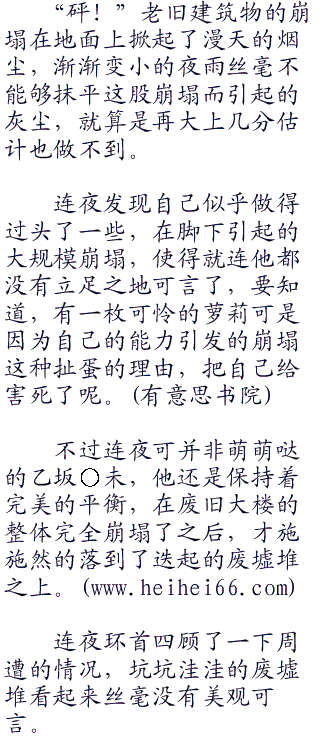 “砰！”老旧建筑物的崩
塌在地面上掀起了漫天的烟
尘，渐渐变小的夜雨丝毫不
能够抹平这股崩塌而引起的
灰尘，就算是再大上几分估
计也做不到。
连夜发现自己似乎做得
过头了一些，在脚下引起的
大规模崩塌，使得就连他都
没有立足之地可言了，要知
道，有一枚可怜的萝莉可是
因为自己的能力引发的崩塌
这种扯蛋的理由，把自己给
害死了呢。(有意思书院)
不过连夜可并非萌萌哒
的乙坂○未，他还是保持着
完美的平衡，在废旧大楼的
整体完全崩塌了之后，才施
施然的落到了迭起的废墟堆
之上。(www.heihei66.com)
连夜环首四顾了一下周
遭的情况，坑坑洼洼的废墟
堆看起来丝毫没有美观可
言。